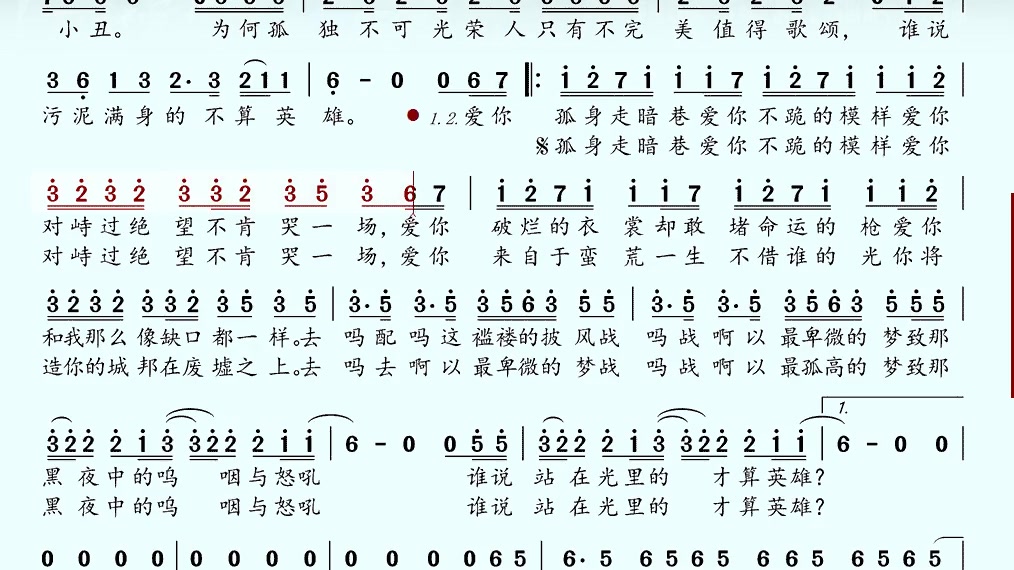 小丑。 为何孤 独 不可 光荣 人只有不完 美 值得 歌颂， 谁说
3 6 1 3 2· 3 2 1 1 | 6 - 0 0 6 7 ‖: 1 2 7 1 1 1 7 1 2 7 1 1 1 2 |
污泥满身的 不算 英 雄。 ● 1. 2. 爱你 孤身走暗巷爱你 不跪的模样爱你
𝄋孤身走暗巷爱你 不跪的模样爱你
3 2 3 2 3 3 2 3 5 3 6 7 | 1 2 7 1 1 1 7 1 2 7 1 1 1 2 |
对峙过绝 望不肯 哭一 场，爱你 破烂的衣 裳却敢 堵命运的 枪爱你
对峙过绝 望不肯 哭一 场，爱你 来自于蛮 荒一生 不借谁的 光你将
3 2 3 2 3 3 2 5 3 3 5 | 3· 5 3· 5 3 5 6 3 5 5 | 3· 5 3· 5 3 5 6 3 5 5 5 |
和我那么 像缺口 都一 样。去 吗配吗这 褴褛的披 风战 吗战 啊以 最卑微的 梦致那
造你的城 邦在废 墟之 上。去 吗去 啊以 最卑微的 梦战 吗战 啊以 最孤高的 梦致那
1.
3 2 2 2 1 3 3 2 2 2 1 1 | 6 - 0 0 5 5 | 3 2 2 2 1 3 3 2 2 2 1 1 | 6 - 0 0 |
黑 夜中的呜 咽与怒吼 谁说 站 在光里的 才算英雄?
黑 夜中的呜 咽与怒吼 谁说 站 在光里的 才算英雄?
0 0 0 0 | 0 0 0 0 | 0 0 0 0 6 5 | 6· 5 6 5 6 5 6 5 6 5 |